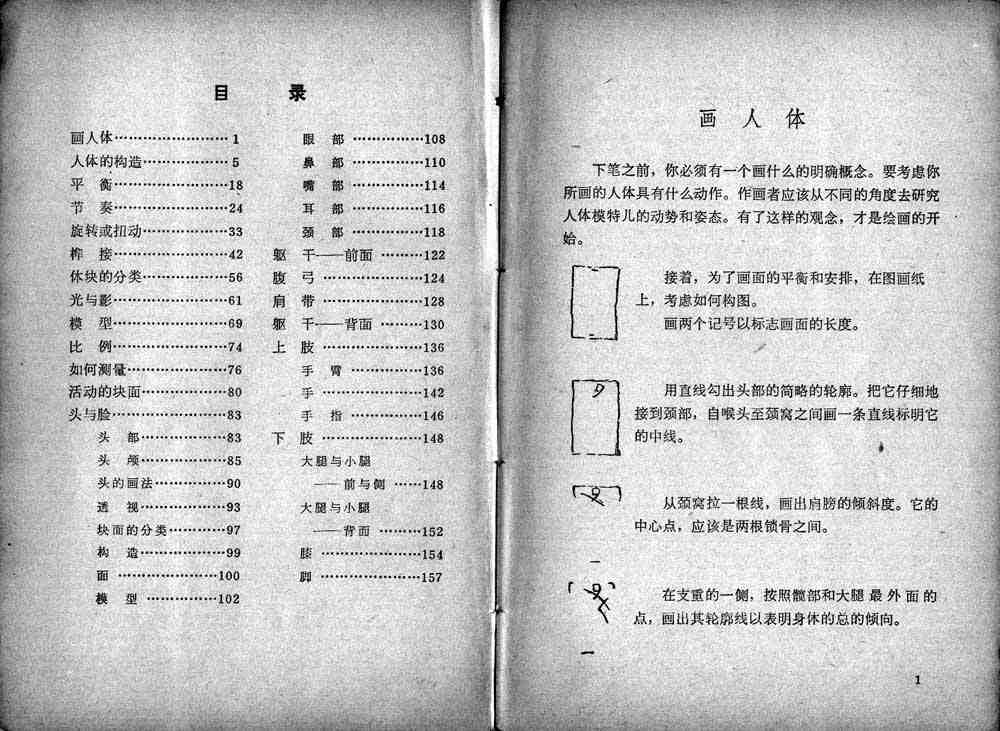 目 录
画人体……………………1
人体的构造………………5
平 衡……………………18
节 奏……………………24
旋转或扭动………………33
榫 接……………………42
体块的分类………………56
光与影……………………61
模 型……………………69
比 例……………………74
如何测量…………………76
活动的块面………………80
头与脸……………………83
头 部………………83
头 颅………………85
头的画法……………90
透 视………………93
块面的分类…………97
构 造………………99
面 ………………100
模 型 ……………102
眼 部 ……………108
鼻 部 ……………110
嘴 部 ……………114
耳 部 ……………116
颈 部 ……………118
躯 干——前面 ………122
腹 弓 …………………124
肩 带 …………………128
躯 干——背面 ………130
上 肢 …………………136
手 臂 ……………136
手 …………………142
手 指 ……………146
下 肢 …………………148
大腿与小腿
——前与侧 ……148
大腿与小腿
——背面 ………152
膝 …………………154
脚 …………………157
画 人 体
下笔之前，你必须有一个画什么的明确概念。要考虑你
所画的人体具有什么动作。作画者应该从不同的角度去研究
人体模特儿的动势和姿态。有了这样的观念，才是绘画的开
始。
接着，为了画面的平衡和安排，在图画纸
上，考虑如何构图。
画两个记号以标志画面的长度。
用直线勾出头部的简略的轮廓。把它仔细地
接到颈部，自喉头至颈窝之间画一条直线标明它
的中线。
从颈窝拉一根线，画出肩膀的倾斜度。它的
中心点，应该是两根锁骨之间。
在支重的一侧，按照髋部和大腿最外面的
点，画出其轮廓线以表明身体的总的倾向。
1